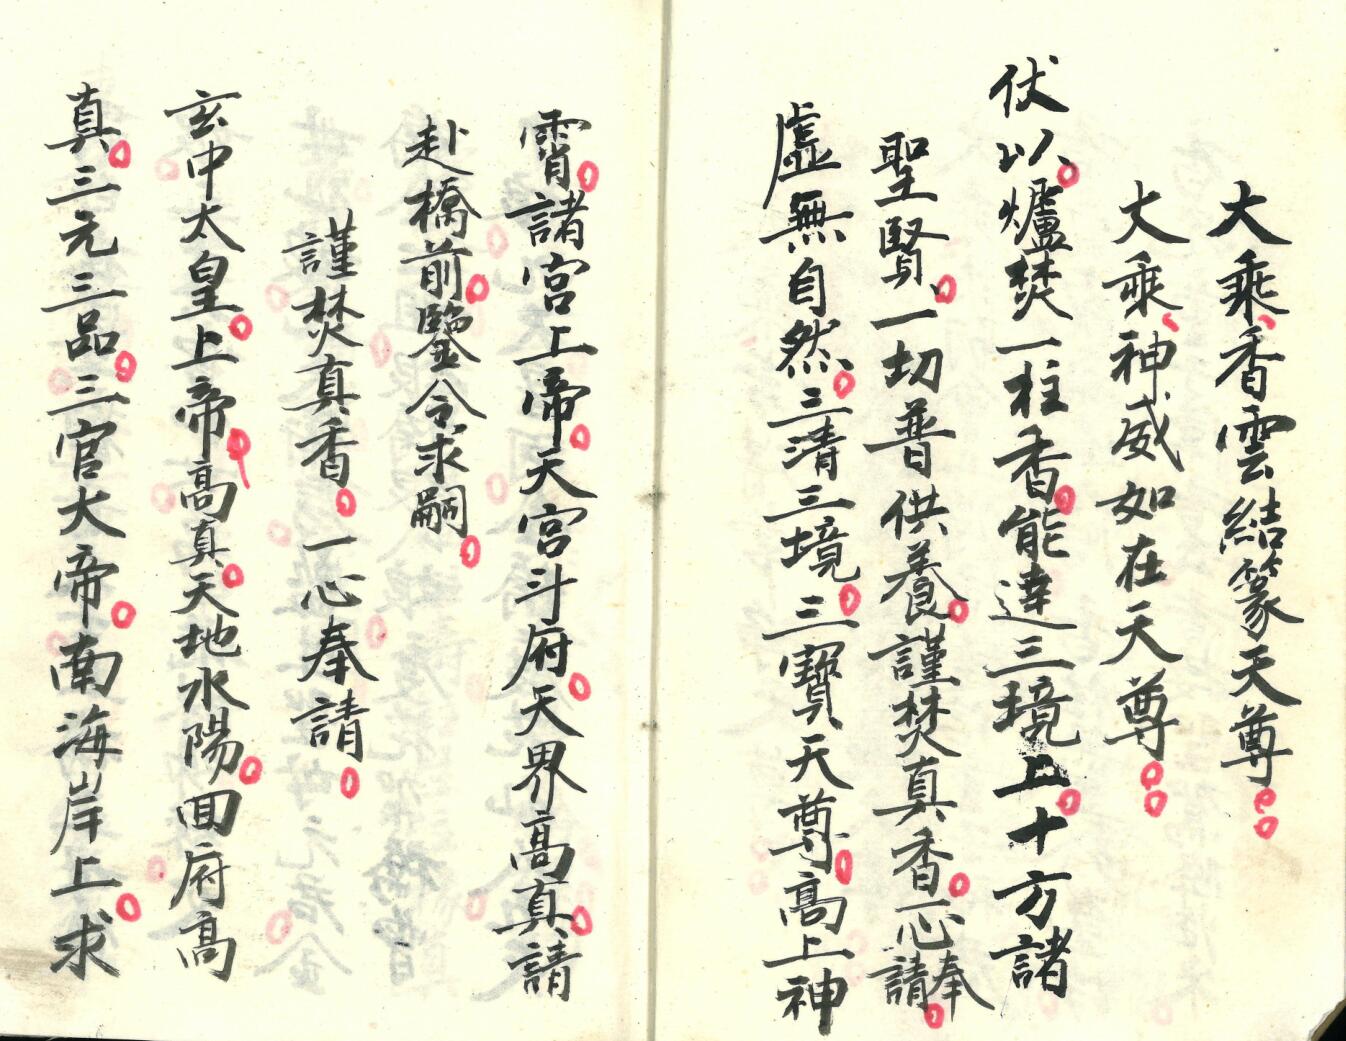 大乘香雲結篆天尊
大乘神威如在天尊
伏以爐焚一柱香能達三境上十方諸
聖賢一切普供養謹焚真香一心奉請
虛無自然三清三境三寶天尊高上神
霄諸宮上帝天宮斗府天界高真請
赴橋前鑒令求嗣
謹焚真香一心奉請
玄中太皇上帝高真天地水陽回府高
真三元三品三官大帝南海岸上求